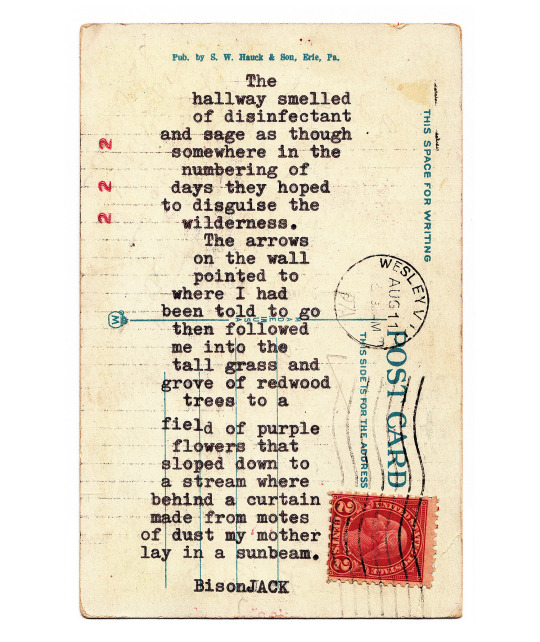 Pub. by S. W. Hauck & Son, Erie, Pa.
The
hallway smelled
of disinfectant
and sage as though
somewhere in the
numbering of
days they hoped
to disguise the
wilderness.
The arrows
on the wall
pointed to
where I had
been told to go
then followed
me into the
tall grass and
grove of redwood
trees to a
field of purple
flowers that
sloped down to
a stream where
behind a curtain
made from motes
of dust my mother
lay in a sunbeam.
BisonJACK
2 2 2
THIS SPACE FOR WRITING
MADE IN USA
WESLEYVI
AUG 11
M
POST CARD
THIS SIDE IS FOR THE ADDRESS
UNITED STATES POSTAGE
2 CENTS 2